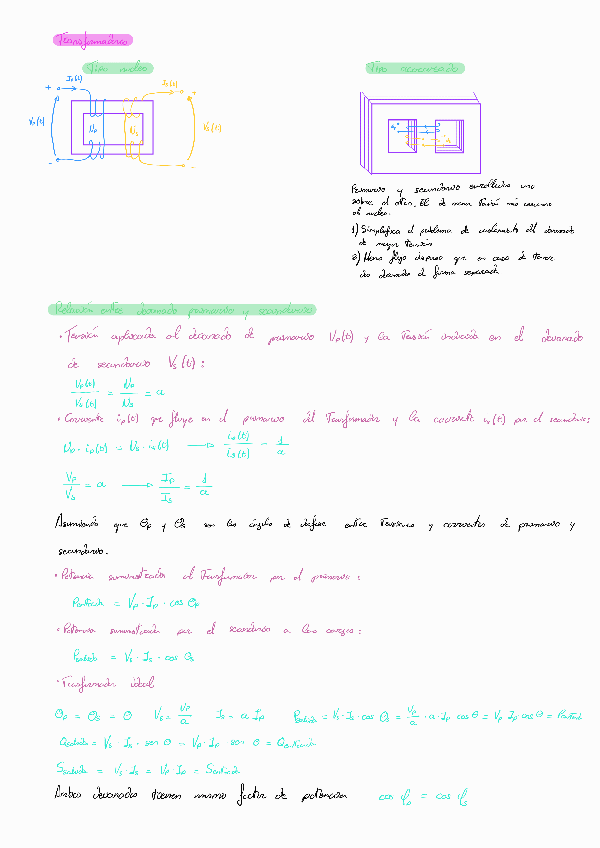 Transformadores
Tipo núcleo
Tipo acorazado
Ip(t)
Is(t)
+
+
Vp(t)
Np
Ns
Vs(t)
-
-
Primario y secundario enrollados uno
sobre el otro. El de menor tensión más cercano
al núcleo.
1) Simplifica el problema de aislamiento del devanado
de mayor tensión
2) Menos flujo disperso que en caso de tener
dos devanados de forma separada
Relación entre devanado primario y secundario
· Tensión aplicada al devanado de primario Vp(t) y la tensión inducida en el devanado
de secundario Vs(t) :
Vp(t)/Vs(t) = Np/Ns = a
· Corriente ip(t) que fluye en el primario del transformador y la corriente is(t) por el secundario:
Np · ip(t) = Ns · is(t) → ip(t)/is(t) = 1/a
Vp/Vs = a → Ip/Is = 1/a
Asumiendo que θp y θs son los ángulos de desfase entre tensiones y corrientes de primario y
secundario.
· Potencia suministrada al transformador por el primario :
Pentrada = Vp · Ip · cos θp
· Potencia suministrada por el secundario a las cargas :
Psalida = Vs · Is · cos θs
· Transformador ideal
θp = θs = θ Vs = Vp/a Is = a Ip Psalida = Vs · Is · cos θs = Vp/a · a · Ip cos θ = Vp Ip cos θ = Pentrada
Qsalida = Vs · Is · sen θ = Vp · Ip · sen θ = Qentrada
Ssalida = Vs · Is = Vp · Ip = Sentrada
Ambos devanados tienen mismo factor de potencia cos φp = cos φs